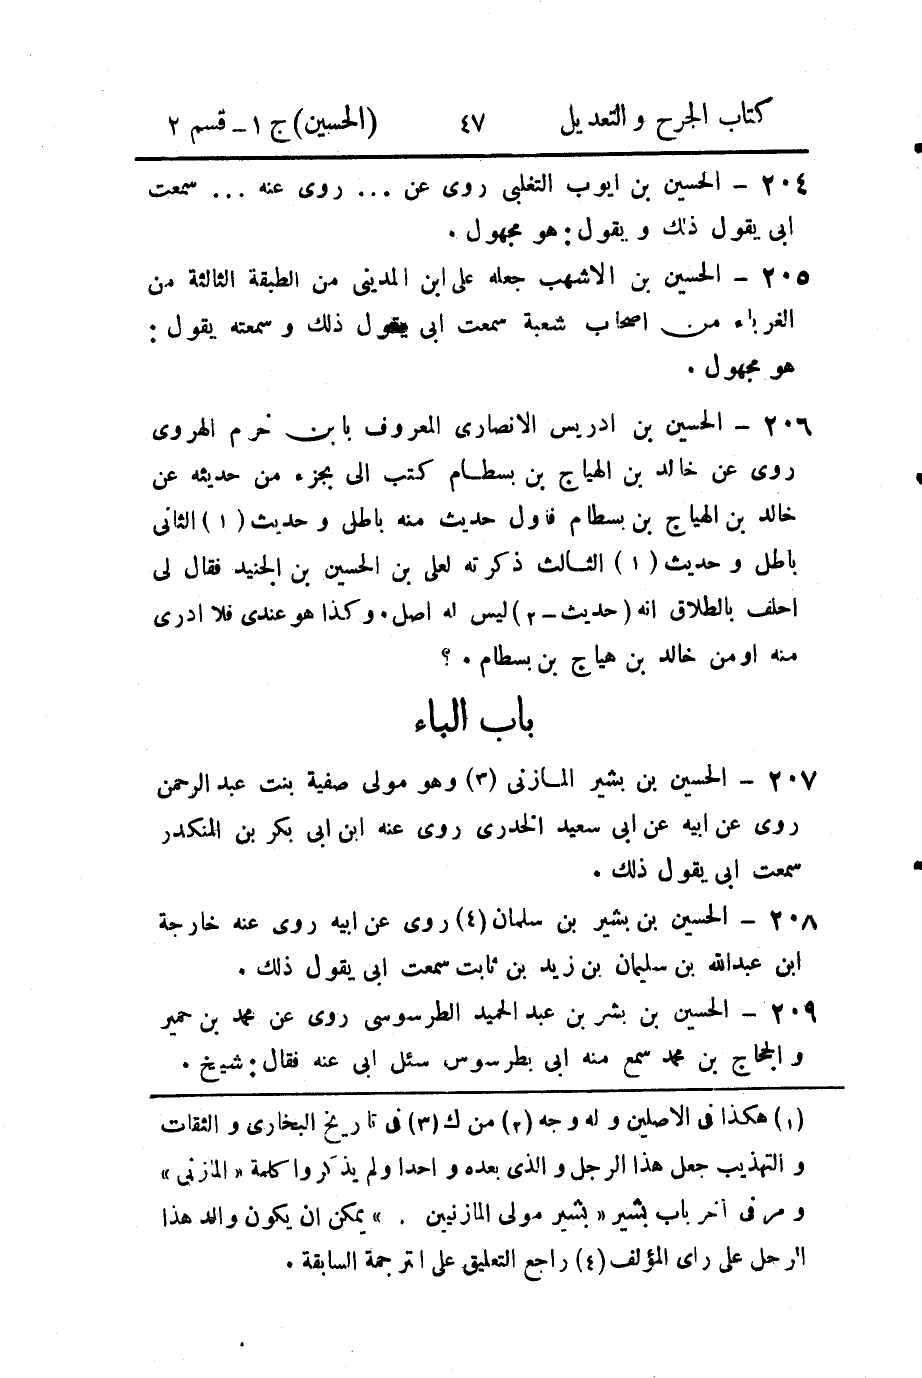 كتاب الجرح والتعديل ٤٧ (الحسين) ج ١ - قسم ٢
٢٠٤ - الحسين بن ايوب التغلبى روى عن ... روى عنه ... سمعت
ابى يقول ذلك ويقول: هو مجهول.
٢٠٥ - الحسين بن الاشهب جعله على ابن المدينى من الطبقة الثالثة من
الغرباء من اصحاب شعبة سمعت ابى يقول ذلك وسمعته يقول:
هو مجهول.
٢٠٦ - الحسين بن ادريس الانصارى المعروف بابن خرم الهروى
روى عن خالد بن الهياج بن بسطام كتب الى بجزء من حديثه عن
خالد بن الهياج بن بسطام فاول حديث منه باطل وحديث (١) الثانى
باطل وحديث (١) الثالث ذكرته لعلى بن الحسين بن الجنيد فقال لى
احلف بالطلاق انه (حديث - ٢) ليس له اصل. وكذا هو عندى فلا ادرى
منه اومن خالد بن هياج بن بسطام. ؟
باب الباء
٢٠٧ - الحسين بن بشير المازنى (٣) وهو مولى صفية بنت عبد الرحمن
روى عن ابيه عن ابى سعيد الخدرى روى عنه ابن ابى بكر بن المنكدر
سمعت ابى يقول ذلك.
٢٠٨ - الحسين بن بشير بن سلمان (٤) روى عن ابيه روى عنه خارجة
ابن عبدالله بن سليمان بن زيد بن ثابت سمعت ابى يقول ذلك.
٢٠٩ - الحسين بن بشر بن عبد الحميد الطرسوسى روى عن محمد بن حمير
والحجاج بن محمد سمع منه ابى بطرسوس سئل ابى عنه فقال: شيخ.
(١) هكذا فى الاصلين وله وجه (٢) من ك (٣) فى تاريخ البخارى والثقات
والتهذيب جعل هذا الرجل والذى بعده واحدا ولم يذكروا كلمة « المازنى »
ومر فى آخر باب بشير « بشير مولى المازنيين . » يمكن ان يكون والد هذا
الرجل على راى المؤلف (٤) راجع التعليق على الترجمة السابقة.